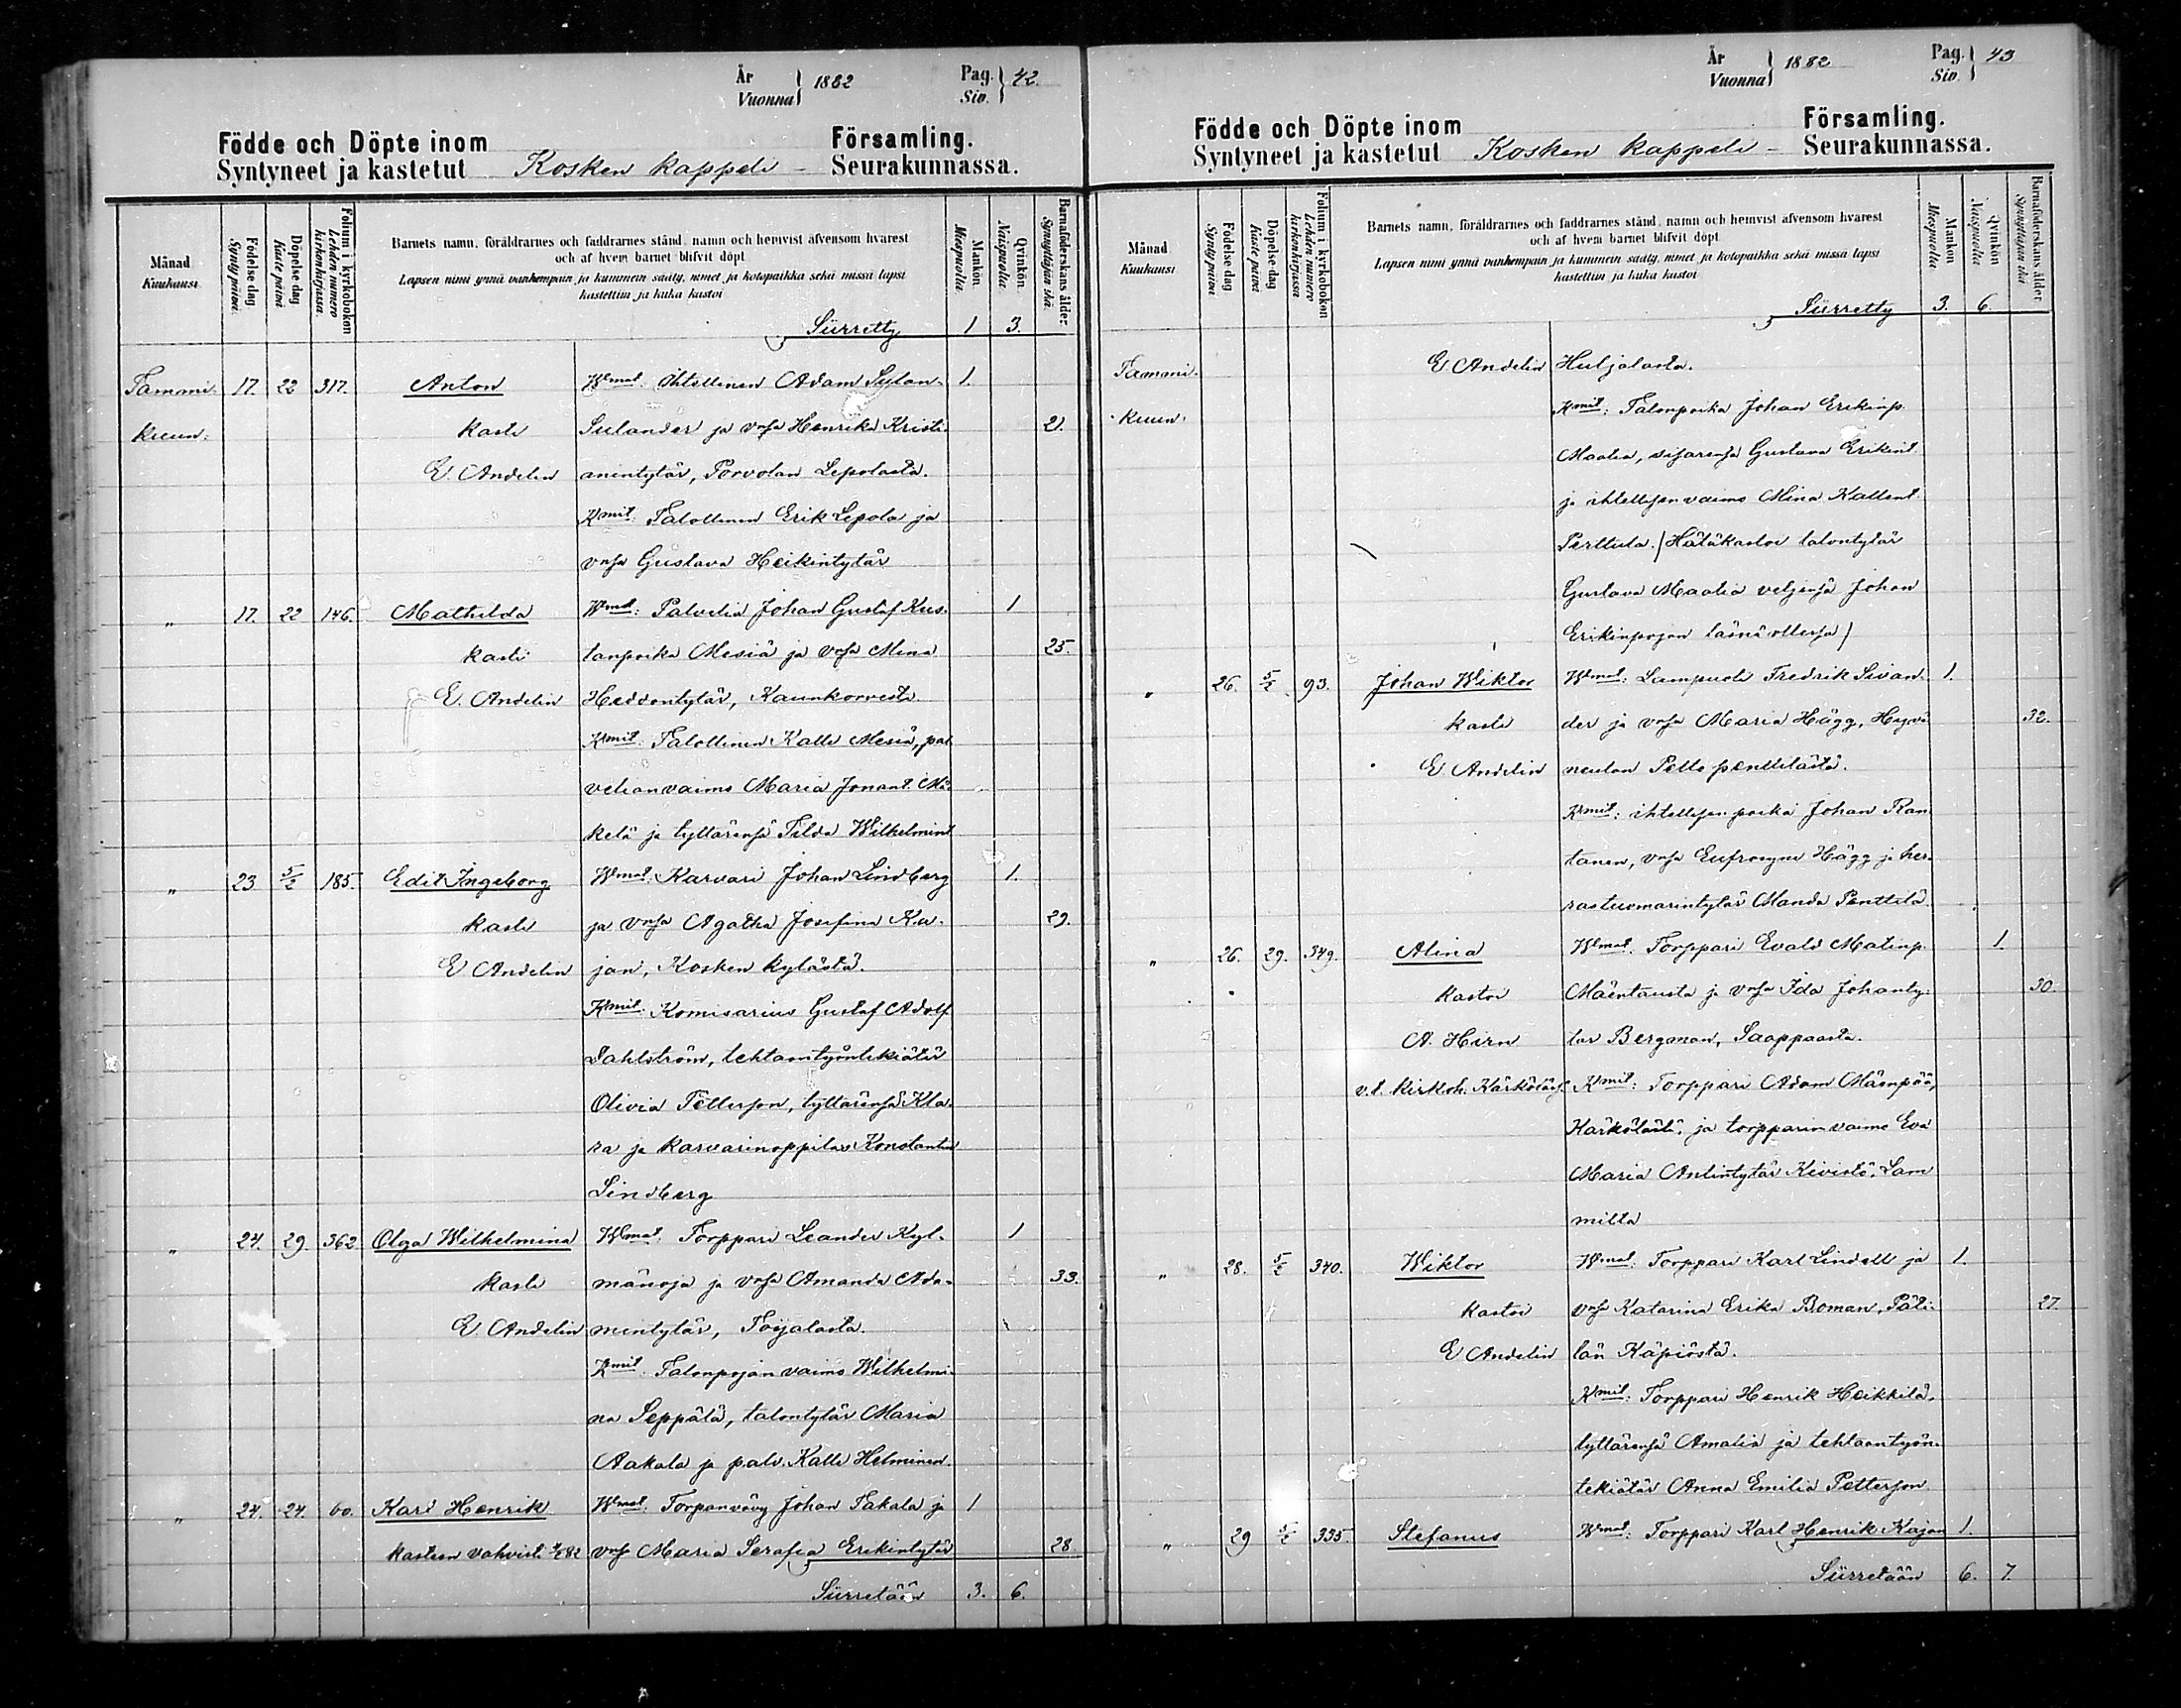 År
Vuonna } 1882
Pag.
Siv. } 42.
Födde och Döpte inom Församling.
Syntyneet ja kastetut Kosken kappeli - Seurakunnassa.
Månad Kuukausi
Födelse dag Synty päivä
Döpelse dag Kaste päivä
Folium i kyrkoboken Lehden numero kirkonkirjassa.
Barnets namn, föräldrarnes och faddrarnes stånd, namn och hemvist äfvensom hvarest
och af hvem barnet blifvit döpt
Lapsen nimi ynnä vanhempain ja kummein sääty, nimet ja kotopaikka sekä missä lapsi
kastettiin ja kuka kastoi
Mankön Miespuolia.
Qvinkön Naispuolia.
Barnaföderskans ålder. Synnyttäjän ikä.
Siirretty 1 3.
Tammi- 17. 22 317. Anton Wmat. ihtellinen Adam Sylan- 1.
kuun. kasti Sulander ja vnsa Henrika Kristi- 21.
E. Andelin anintytär, Porvolan Lepolasta.
Kmit: Talollinen Erik Lepola ja
vnsa Gustava Heikintytär
" 17. 22 146. Mathilda Wmat: Palvelia Johan Gustaf Kus- 1
kasti tanpoika Mesiä ja vnsa Mina 25.
E. Andelin Heddontytär, Kaunkorvesta
Kmit: Talollinen Kalle Mesiä, pal
velianvaimo Maria Jonant. Mä-
kelä ja tyttärensä Tilda Wilhelmint
" 23 5/2 185. Edit Ingeborg Wmat: Karvari Johan Lindberg 1.
kasti ja vnsa Agatha Josefina Ka- 29.
E Andelin jan, Kosken kylästä.
Kmit: Komisarius Gustaf Adolf
Dahlström, tehtaantyöntekiätär
Olivia Pettersson, tyttärensä Kla-
ra ja karvarinoppilas Konstantin
Lindberg
" 24. 29. 362 Olga Wilhelmina Wmat: Torppari Leander Kyl- 1
kasti mänoja ja vnsa Amanda Ada- 33.
E. Andelin mintytär, Toijalasta.
Kmit: Talonpojan vaimo Wilhelmi-
na Seppälä, talontytär Maria
Aakala ja palv. Kalle Helminen.
" 24. 24. 60. Karl Henrik Wmat: Torpanvävy Johan Takala ja 1
kasteen vahvisti vnsa Maria Serafia Erikintytär 28
Siirretään 3. 6.
År
Vuonna } 1882
Pag.
Siv. } 43
Födde och Döpte inom Församling.
Syntyneet ja kastetut Kosken kappeli - Seurakunnassa.
Månad Kuukausi
Födelse dag Synty päivä
Döpelse dag Kaste päivä
Folium i kyrkoboken Lehden numero kirkonkirjassa
Barnets namn, föräldrarnes och faddrarnes stånd, namn och hemvist äfvensom hvarest
och af hvem barnet blifvit döpt
Lapsen nimi ynnä vanhempain ja kummein sääty, nimet ja kotopaikka sekä missä lapsi
kastettiin ja kuka kastoi
Mankön Miespuolia
Qvinkön Naispuolia
Barnaföderskans ålder Synnyttäjän ikä
Siirretty 3. 6.
Tammi- E Andelin Huljalasta.
kuun. Kmit: Talonpoika Johan Erikinp.
Maalia, sisarensa Gustava Erikint
ja ihtellisen vaimo Mina Kallent.
Perttula. /Hätäkastoi talontytär
Gustava Maalia veljensä Johan
Erikinpojan läsnä ollessa/
" 26. 5/2 93. Johan Wiktor Wmat: Lampuoti Fredrik Sivan- 1.
kasti der ja vnsa Maria Hägg, Hyvi- 32.
E Andelin neulan Pello penttilästä.
Kmit: ihtellisen poika Johan Ran
tanen, vnsa Eufrosyne Hägg ja her-
rastuomarintytär Manda Penttilä.
" 26. 29. 349. Alina Wmat. Torppari Evald Matinp. 1.
kastoi Mäentausta ja vnsa Ida Johanty- 30.
A. Hirn tär Bergman, Saappaasta.
v.t. kirkoh. Kärkölässä Kmit: Torppari Adam Mäenpää,
Kärkölästä, ja torpparin vaimo Eva
Maria Antintytär Kivistö, Lam
milta
" 28. 5/2 340. Wiktor Wmat: Torppari Karl Lindell ja 1.
kastoi vnsa Katarina Erika Boman, Päti- 27.
E Andelin län Käpiöstä.
Kmit: Torppari Henrik Heikkilä,
tyttärensä Amalia ja tehtaantyön-
tekiätär Anna Emilia Pettersson
" 29 5/2 335. Stefanus Wmat: Torppari Karl Henrik Kajan 1.
Siirretään 6. 7.